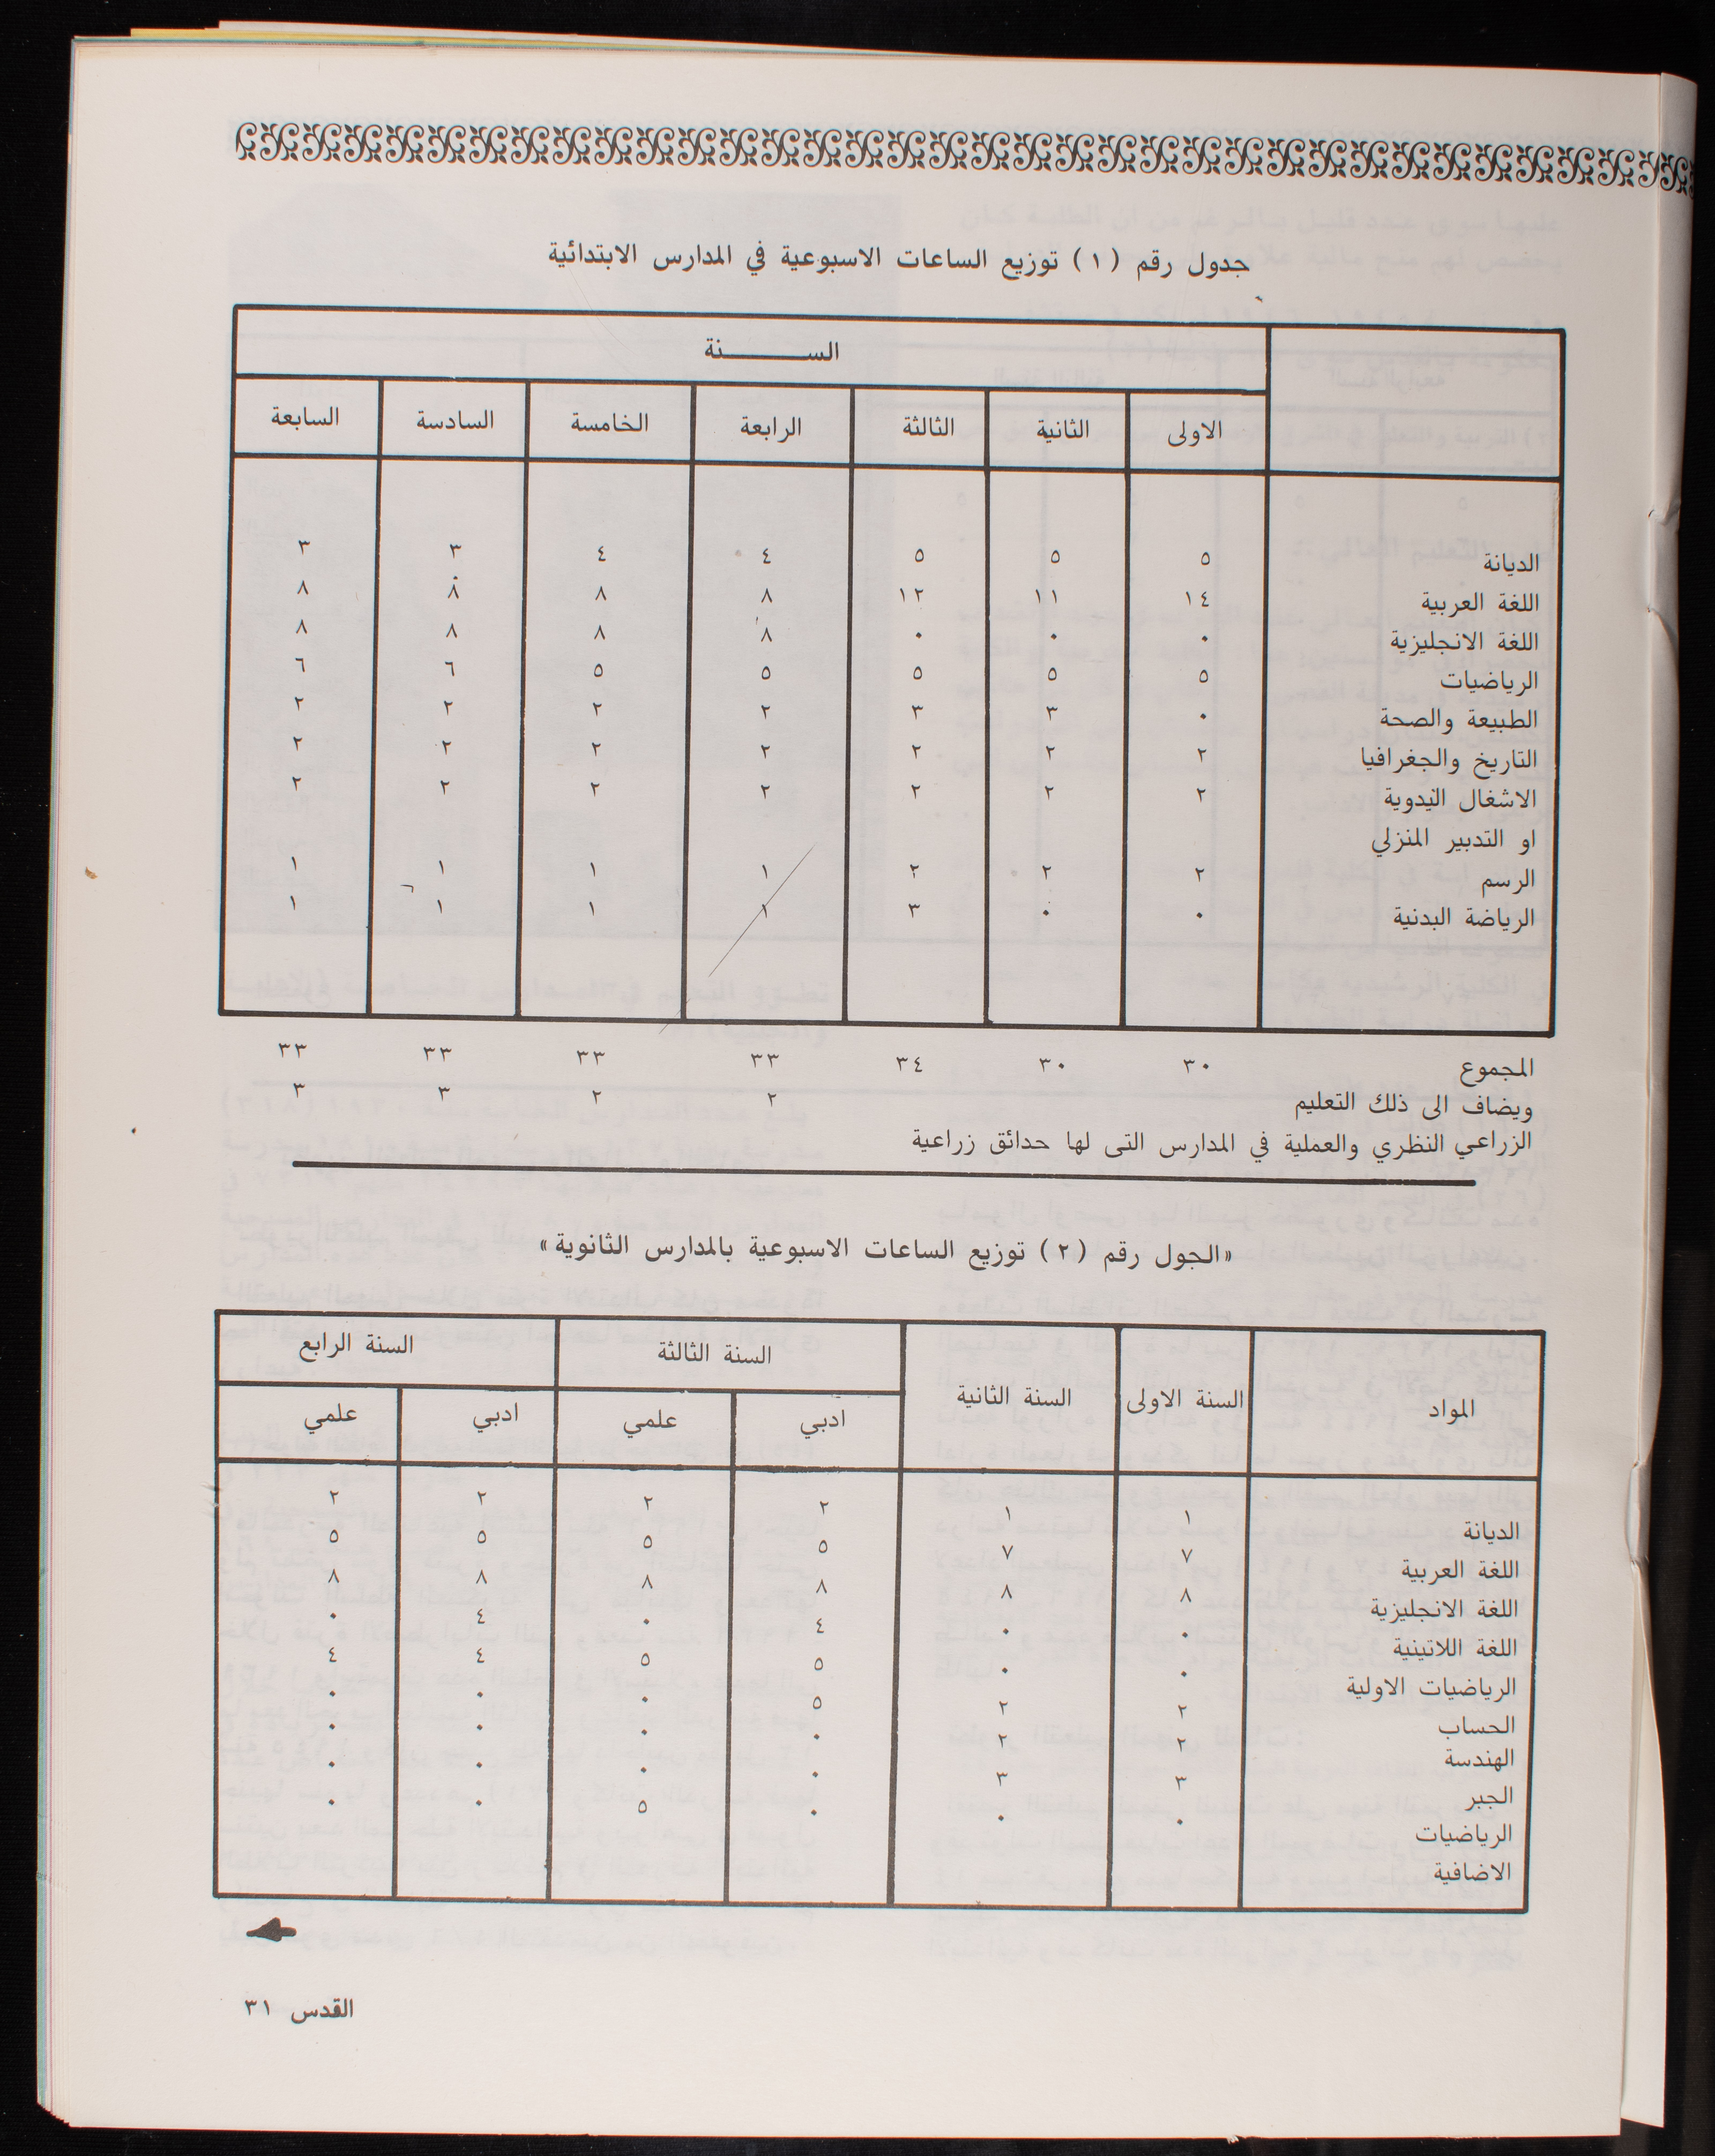 جدول رقم (١) توزيع الساعات الاسبوعية في المدارس الابتدائية
الســـــنة
الاولى الثانية الثالثة الرابعة الخامسة السادسة السابعة
الديانة ٥ ٥ ٥ ٤ ٤ ٣ ٣
اللغة العربية ١٤ ١١ ١٢ ٨ ٨ ٨ ٨
اللغة الانجليزية ٠ ٠ ٠ ٨ ٨ ٨ ٨
الرياضيات ٥ ٥ ٥ ٥ ٥ ٦ ٦
الطبيعة والصحة ٠ ٣ ٣ ٢ ٢ ٢ ٢
التاريخ والجغرافيا ٢ ٢ ٢ ٢ ٢ ٢ ٢
الاشغال اليدوية ٢ ٢ ٢ ٢ ٢ ٢ ٢
او التدبير المنزلي
الرسم ٢ ٢ ٢ ١ ١ ١ ١
الرياضة البدنية ٠ ٠ ٣ ١ ١ ١ ١
المجموع ٣٠ ٣٠ ٣٤ ٣٣ ٣٣ ٣٣ ٣٣
ويضاف الى ذلك التعليم ٢ ٢ ٣ ٣
الزراعي النظري والعملية في المدارس التى لها حدائق زراعية
«الجول رقم (٢) توزيع الساعات الاسبوعية بالمدارس الثانوية»
المواد السنة الاولى السنة الثانية السنة الثالثة السنة الرابع
ادبي علمي ادبي علمي
الديانة ١ ١ ٢ ٢ ٢ ٢
اللغة العربية ٧ ٧ ٥ ٥ ٥ ٥
اللغة الانجليزية ٨ ٨ ٨ ٨ ٨ ٨
اللغة اللاتينية ٠ ٠ ٤ ٠ ٤ ٠
الرياضيات الاولية ٠ ٠ ٥ ٥ ٤ ٤
الحساب ٢ ٢ ٥ ٠ ٠ ٠
الهندسة ٢ ٢ ٠ ٠ ٠ ٠
الجبر ٣ ٣ ٠ ٠ ٠ ٠
الرياضيات ٠ ٠ ٠ ٥ ٠ ٠
الاضافية
القدس ٣١